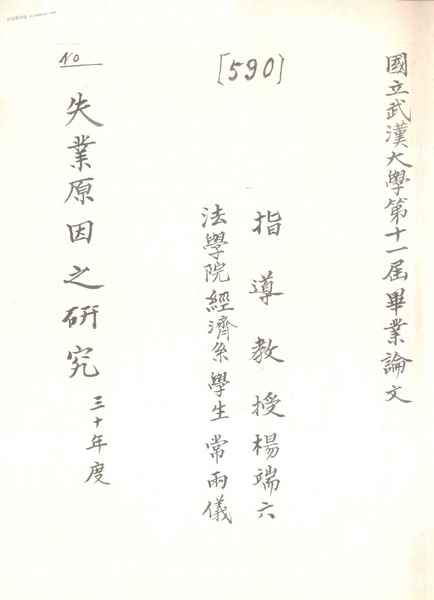 國立武漢大學第十一屆畢業論文
[590]
指導教授楊端六
法學院經濟系學生常雨儀
No
失業原因之研究
三十年度